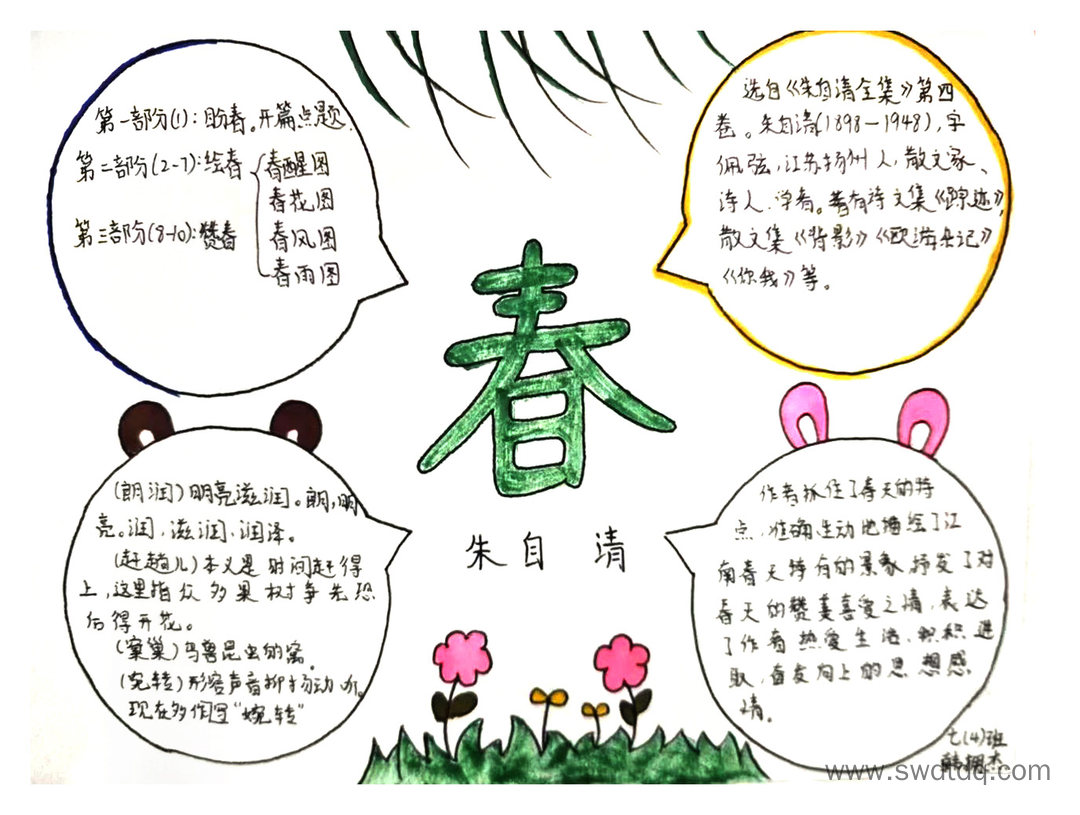 第一部分(1):盼春。开篇点题.
第二部分(2-7):绘春
春醒图
春花图
春风图
春雨图
第三部分(8-10):赞春
选自《朱自清全集》第四
卷。朱自清(1898—1948),字
佩弦,江苏扬州人,散文家、
诗人、学者。著有诗文集《踪迹》,
散文集《背影》《欧游杂记》
《你我》等。
春
朱自清
(朗润)明亮滋润。朗,明
亮。润,滋润、润泽。
(赶趟儿)本义是时间赶得
上,这里指众多果树争先恐
后得开花。
(窠巢)鸟兽昆虫的窝。
(宛转)形容声音抑扬动听。
现在多作写“婉转”
作者抓住了春天的特
点,准确生动地描绘了江
南春天特有的景象,抒发了对
春天的赞美喜爱之情,表达
了作者热爱生活、积极进
取,奋发向上的思想感
情。
七(4)班
韩 杰
www.swdtdq.com